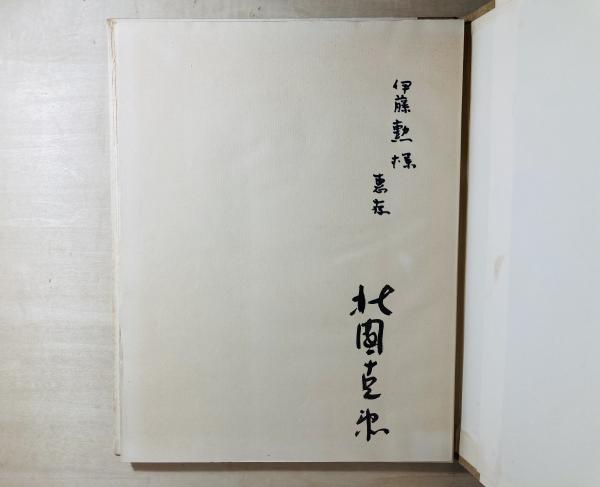 伊藤勲様
恵存
北園克衛